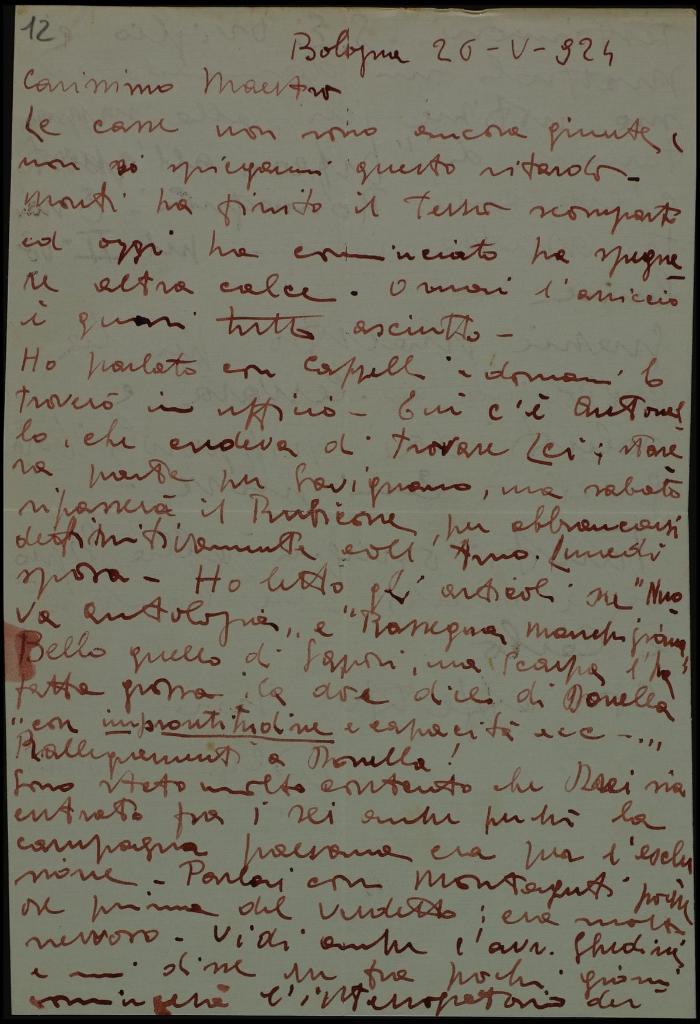 12
Bologna 20-V-924
Carissimo Maestro
Le casse non sono ancora giunte,
non so spiegarmi questo ritardo_
Monti ha finito il terzo scomparto
ed oggi ha cominciato ha spegne
re altra calce. Ormai l'arriccio
è quasi tutto asciutto -
Ho parlato con Cappelli e domani lo
troverò in ufficio - Qui c'è Antonel
lo, che credeva di trovare Lei; stase
ra parte per Savignano, ma sabato
ripasserà il Rubicone, per abbrancarsi
definitivamente coll'Arno. Lunedì
sposa - Ho letto gli articoli su "Nuo
va antologia" e "Rassegna marchigiana"
Bello quello di Sapori, ma Scarpa l'ha
fatta grossa: la dove dice di Donella
"con improntitudine e capacità ecc -..."
Rallegramenti a Donella!
Sono stato molto contento che sia
entrato fra i sei anche perché la
campagna paesana era per l'esclu
sione - Parlai con Montaguti poche
ore prima del verdetto; era molto
nervoso - Vidi anche l'avv. Ghedini
e mi disse che fra pochi giorni
comincerà l'interrogatorio dei